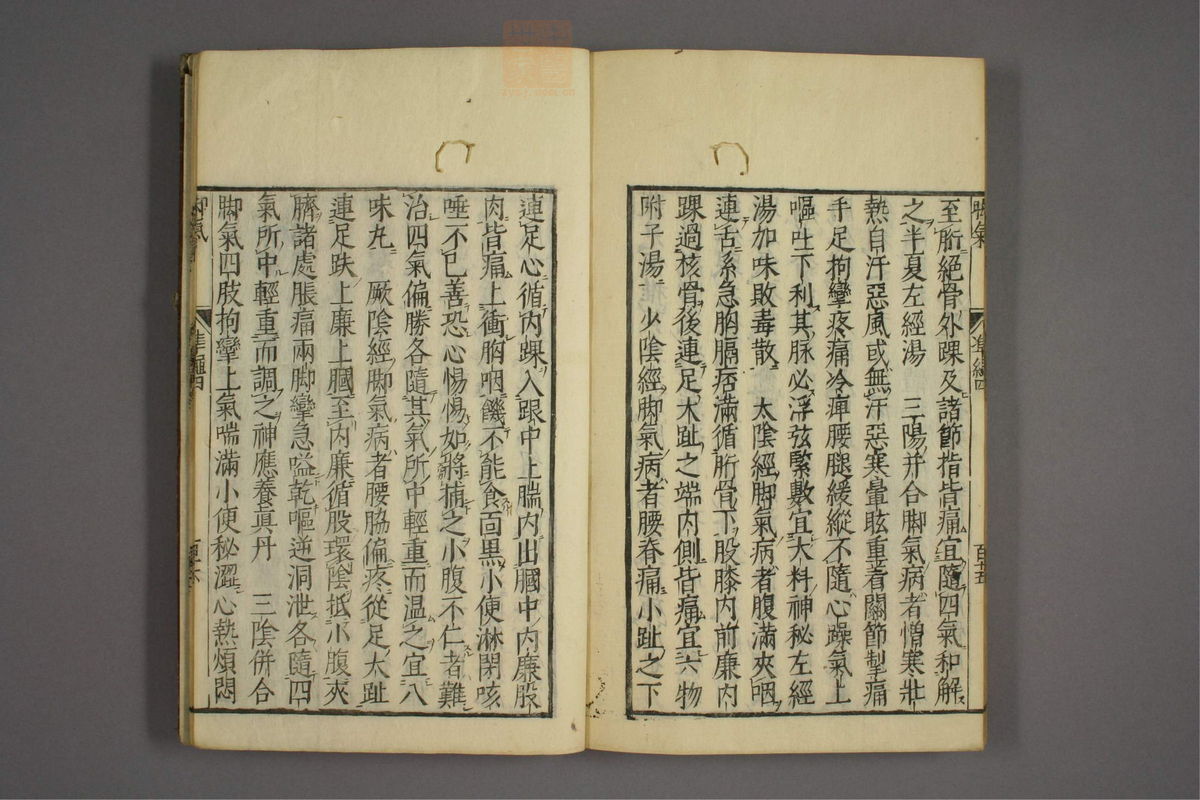 至胻絕骨外踝及諸節指皆痛宜隨四氣和解
之半夏左經湯　三陽并合脚氣病者憎寒壯
熱自汗惡風或無汗惡寒暈眩重着關節掣痛
手足拘攣疼痛冷痺腰腿緩縱不隨心躁氣上
嘔吐下利其脉必浮弦緊數宜大料神秘左經
湯加味敗毒散　太陰經脚氣病者腹滿夾咽
連舌系急胸膈痞滿循胻骨下股膝內前廉內
踝過核骨後連足大趾之端內側皆痛宜六物
附子湯　少陰經脚氣病者腰脊痛小趾之下
連足心循內踝入跟中上腨內出膕中內廉股
肉皆痛上衝胸咽饑不能食面黑小便淋閉咳
唾不已善恐心惕惕如將捕之小腹不仁者難
治四氣偏勝各隨其氣所中輕重而温之宜八
味丸　厥陰經脚氣病者腰脇偏疼從足大趾
連足趺上廉上膕至內廉循股環陰抵小腹夾
臍諸處脹痛兩脚攣急嗌乾嘔逆洞泄各隨四
氣所中輕重而調之神應養真丹　三陰併合
脚氣四肢拘攣上氣喘滿小便秘澀心熱煩悶
脚氣
準繩四